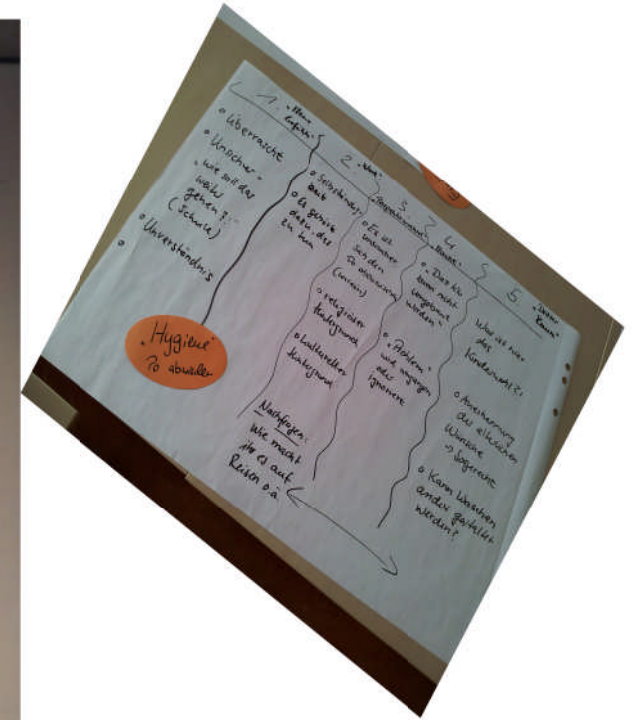 1. "Meine Gefühle"
o überrascht
o Unsicher -
"wie soll das
weiter
gehen?"
(Schule)
o Unverständnis
o
"Hygiene"
Po abwaschen
2.
o Selbständig-
keit
o Es gehört
dazu, das
zu tun
3. "Perspektivwechsel"
o Es ist
unsauber
sich den
Po abzuwischen
(intern)
o religiöser
Hintergrund
o kultureller
Hintergrund
Nachfragen:
Wie macht
ihr es auf
Reisen o.ä
4.
o "Das Kla
kann nicht
umgebaut
werden"
o "Problem"
wie umgehen
oder
ignorieren
5. "Dritter Raum"
Was ist hier
das
Kindeswohl?!
o Anerkennung
des elterlichen
Wunsches
=> Sorgerecht
o Kann Waschen
anders gestaltet
werden?